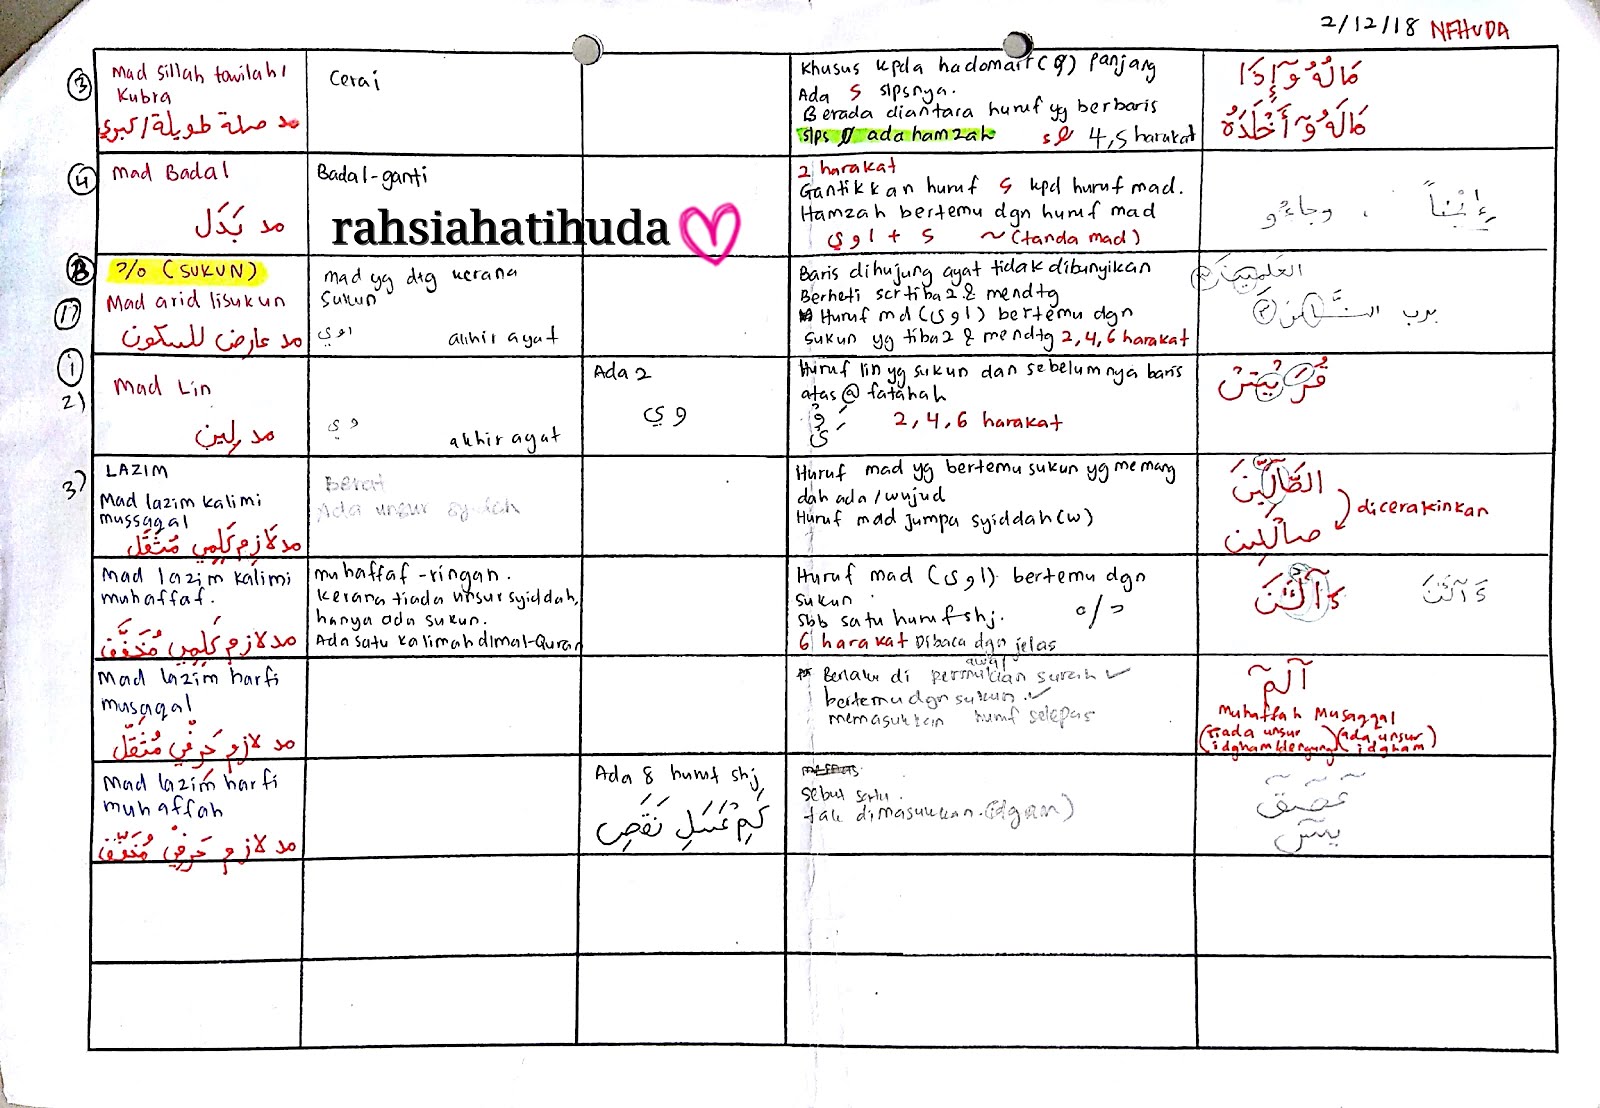 2/12/18 NFHUDA
3
Mad Sillah towilah/
Kubra
مد صلة طويلة/كبرى
Cerai
Khusus kpda hadomair( ) panjang
Ada ء slpsnya.
Berada diantara huruf yg berbaris
slps ada hamzah
4,5 harakat
4
Mad Badal
مد بَدَل
Badal-ganti
rahsiahatihuda
2 harakat
Gantikkan huruf ء kpd huruf mad.
Hamzah bertemu dgn huruf mad
اوي + ء ~ (tanda mad)
(SUKUN)
1)
Mad arid lisukun
مد عارض للسكون
mad yg dtg kerana
Sukun
اوي akhir ayat
Baris dihujung ayat tidak dibunyikan
Berheti scr tiba2 & mendtg
Huruf md (اوي) bertemu dgn
Sukun yg tiba2 & mendtg 2,4,6 harakat
1
2)
Mad Lin
مد لين
وي
akhir ayat
Ada 2
وي
Huruf lin yg sukun dan sebelumnya baris
atas @ fatahah
2, 4, 6 harakat
3)
LAZIM
Mad lazim kalimi
mussaqal
مد لازم كلمي مثقل
Berat
Ada unsur syidah
Huruf mad yg bertemu sukun yg memang
dah ada/wujud
Huruf mad jumpa syiddah(w)
الضَّالِّينَ
dicerakinkan
Mad lazim kalimi
muhaffaf.
مد لازم كلمي مخفف
muhaffaf-ringan.
kerana tiada unsur syiddah,
hanya ada sukun.
Ada satu kalimah dlm al-Quran
Huruf mad (اوي) bertemu dgn
sukun
sbb satu huruf shj.
6 harakat Dibaca dgn jelas
Mad lazim harfi
musaqal
مد لازم حرفي مثقل
awal
Berlaku di permulaan surah ✓
bertemu dgn sukun. ✓
memasukkan huruf selepas
آلم
Muhaffah Musaqqal
(tiada unsur )(ada unsur)
idgham/dengung idgham
Mad lazim harfi
muhaffah
مد لازم حرفي مخفف
Ada 8 huruf shj
كم عسل نقص
sebut satu.
tak dimasukkan.(dgan)
يس